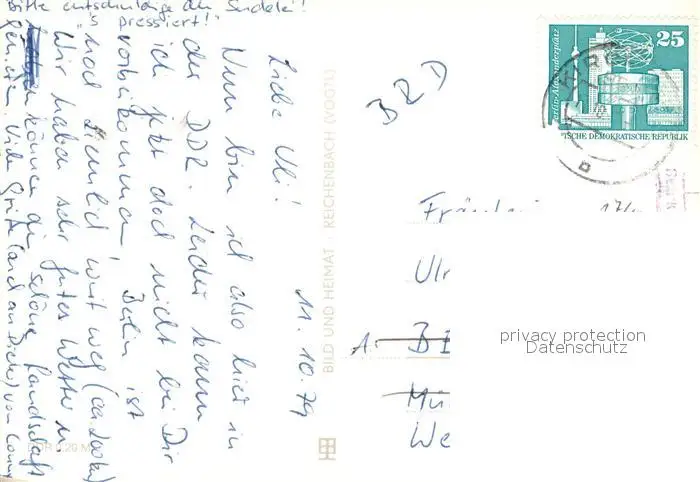 Bitte entschuldige die
"s pressiert!"
11. 10. 79
Liebe Uli!
Nun bin ich also hier in
der DDR. Leider kann
ich jetzt doch nicht bei Dir
vorbeikommen! Berlin ist
noch ziemlich weit weg (ca. 200 km)
Wir haben sehr gutes Wetter u.
können die schöne Landschaft
genießen. Viele Grüße (auch an Dieter) von
BRD
Ulr
A:
B
Mü
We
BILD UND HEIMAT REICHENBACH (VOGTL)
Berlin-Alexanderplatz
25
DEUTSCHE DEMOKRATISCHE REPUBLIK
privacy protection
Datenschutz